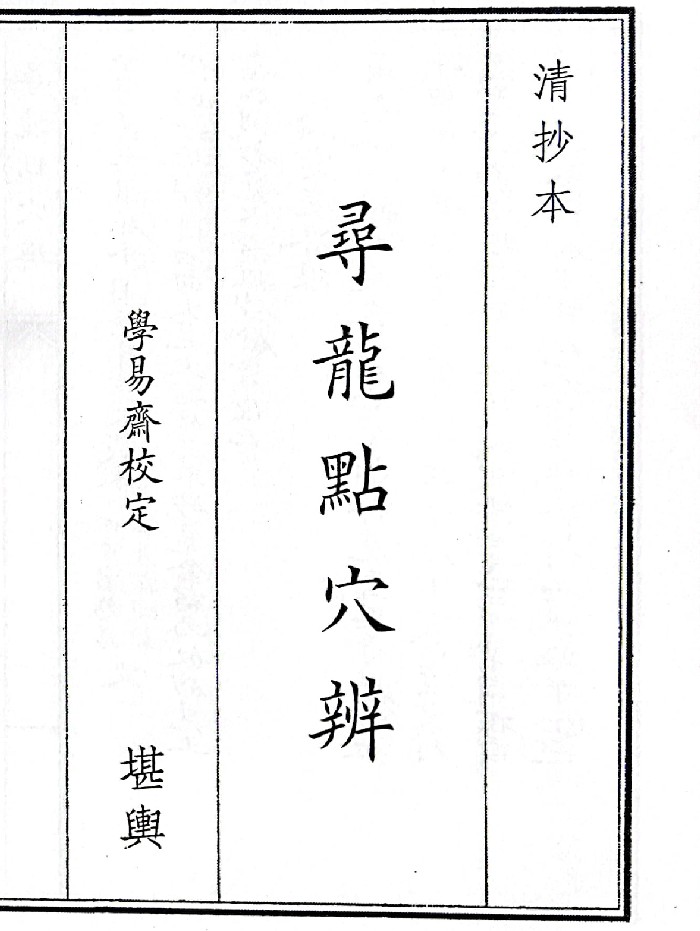 清抄本
尋龍點穴辨
學易齋校定
堪輿